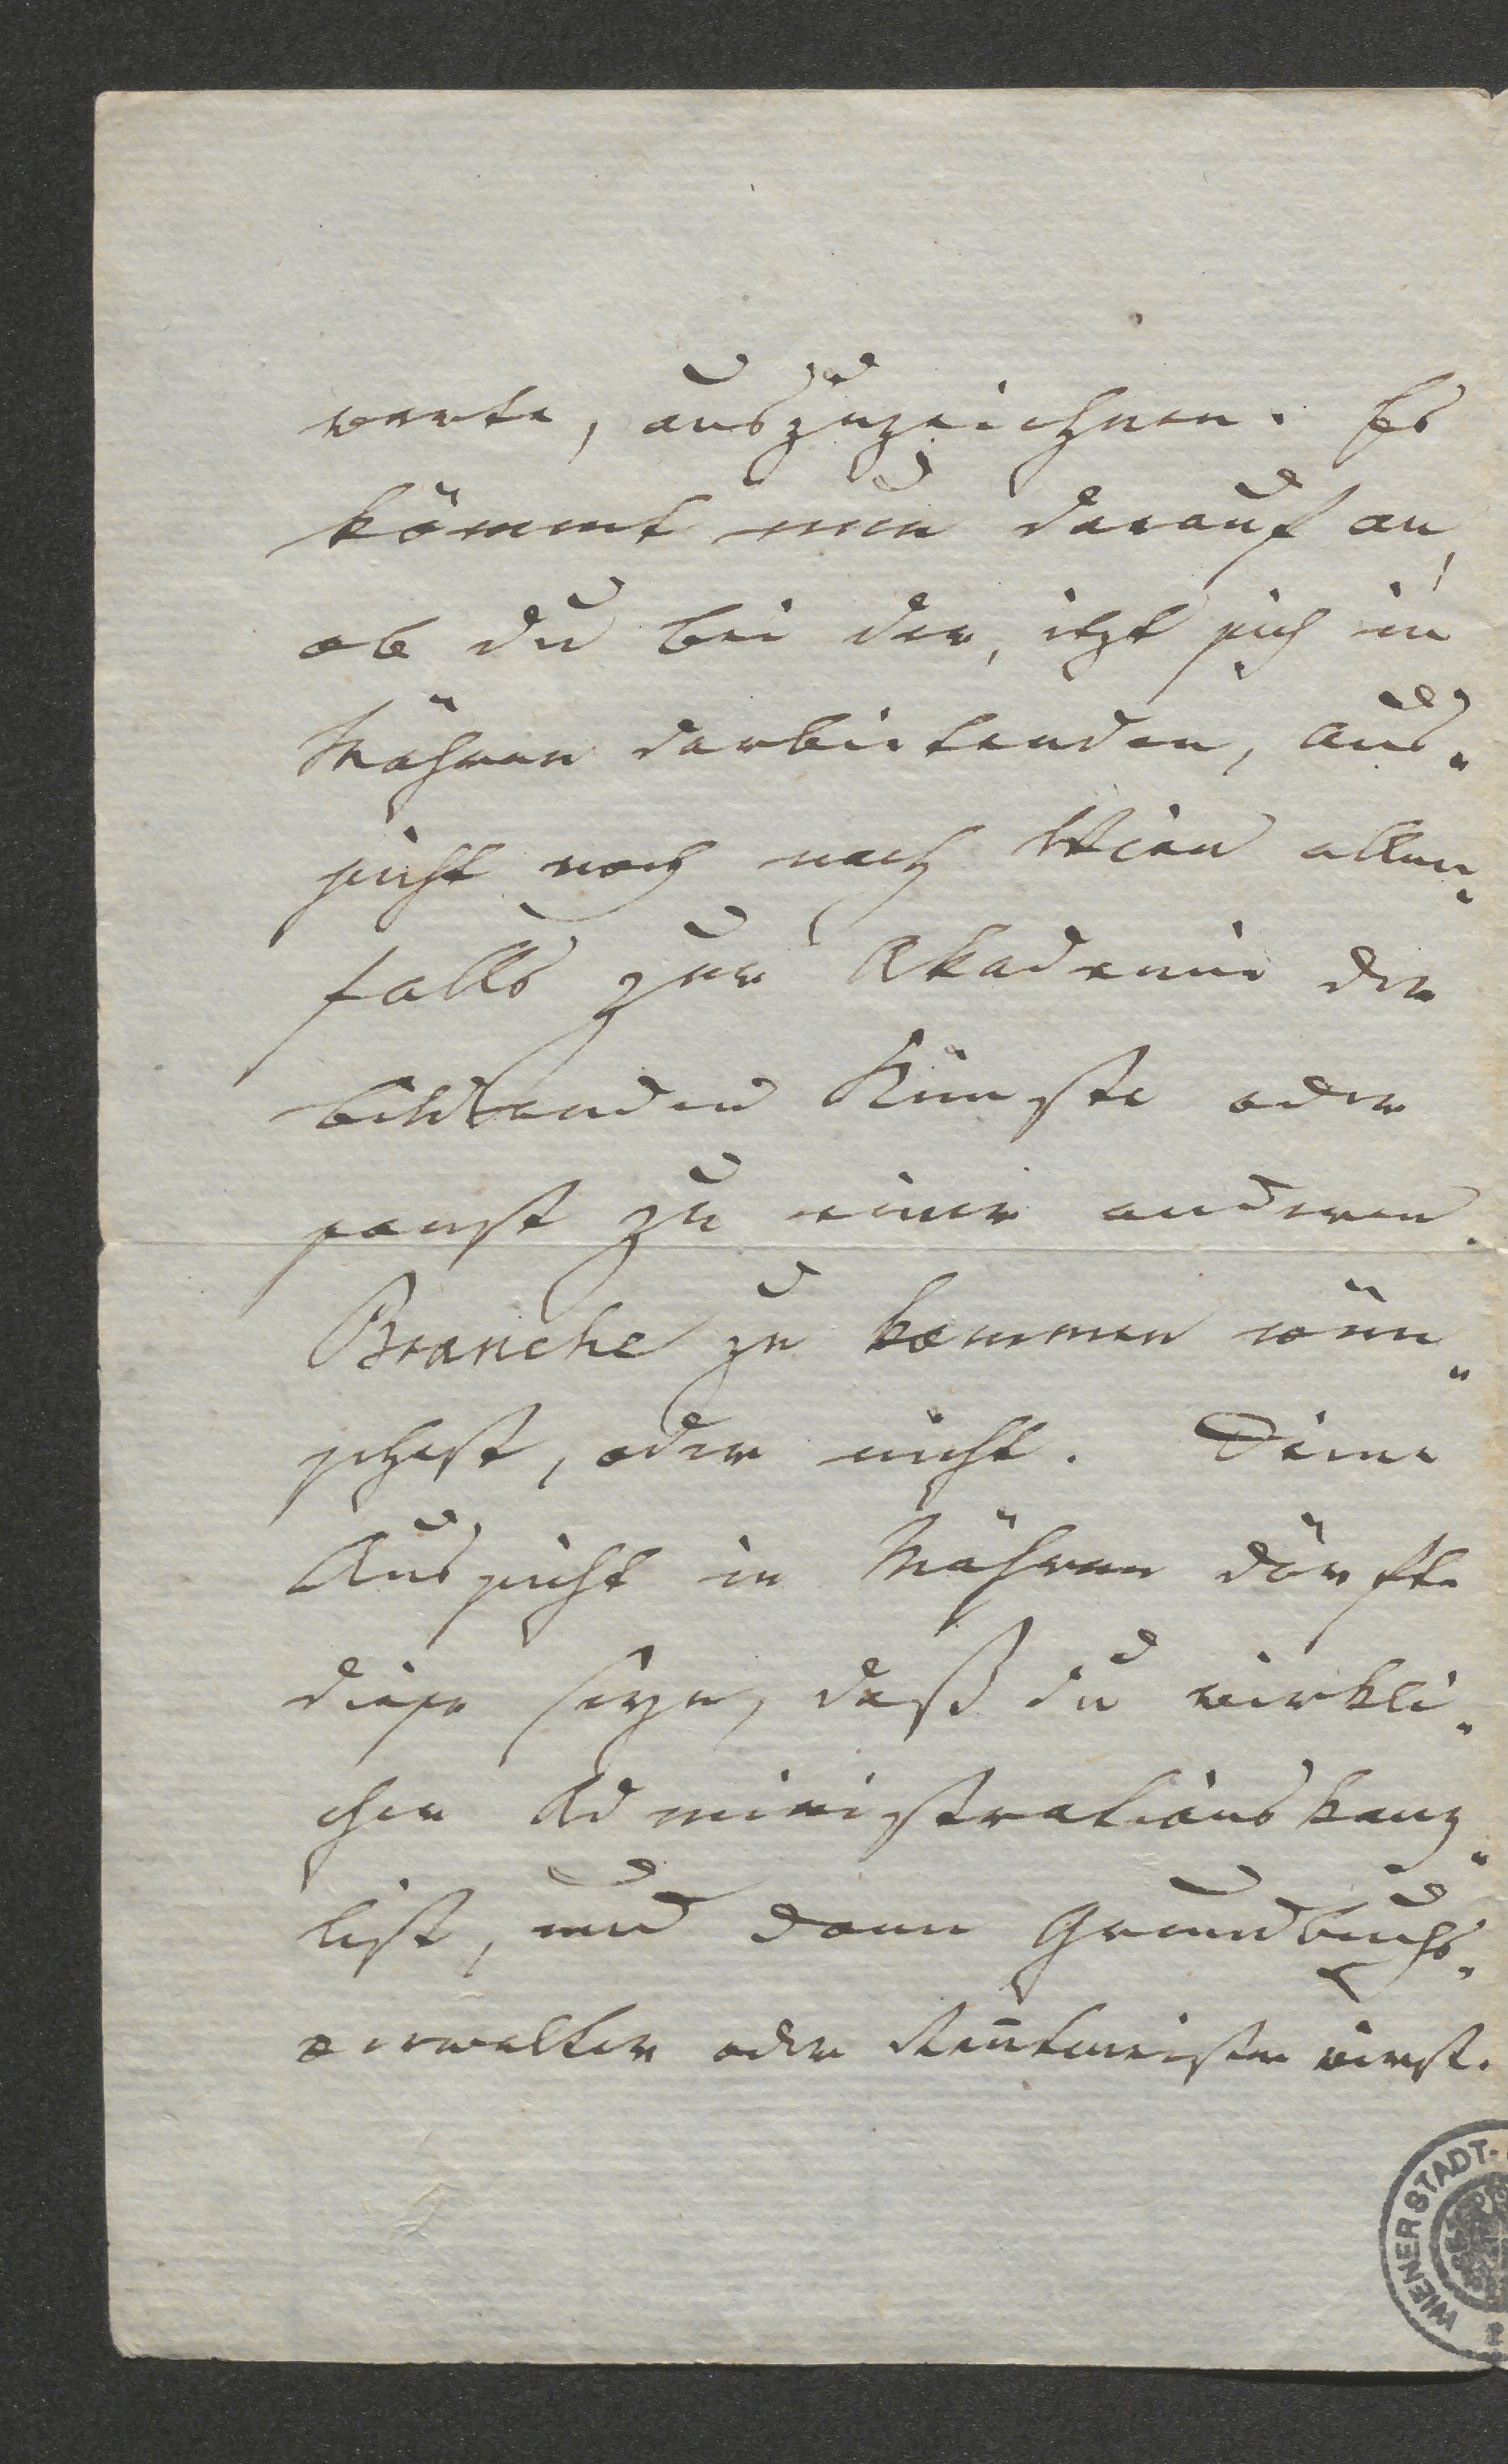 warte, auszuzeichnen. Es
kömmt nun darauf an,
ob du bei der, itzt sich in
Mähren darbietenden, Aus„
sicht noch nach Wien allen„
falls zur Akademie der
bildenden Künste oder
sonst zu einer anderen
Branche zu kommen wün„
schest, oder nicht. Deine
Aussicht in Mähren dörfte
diese seyn, daß du wirkli„
cher Administrationskanz„
list, und dann Grundbuchs„
verwalter oder Rentmeister wirst.
WIENER STADT-